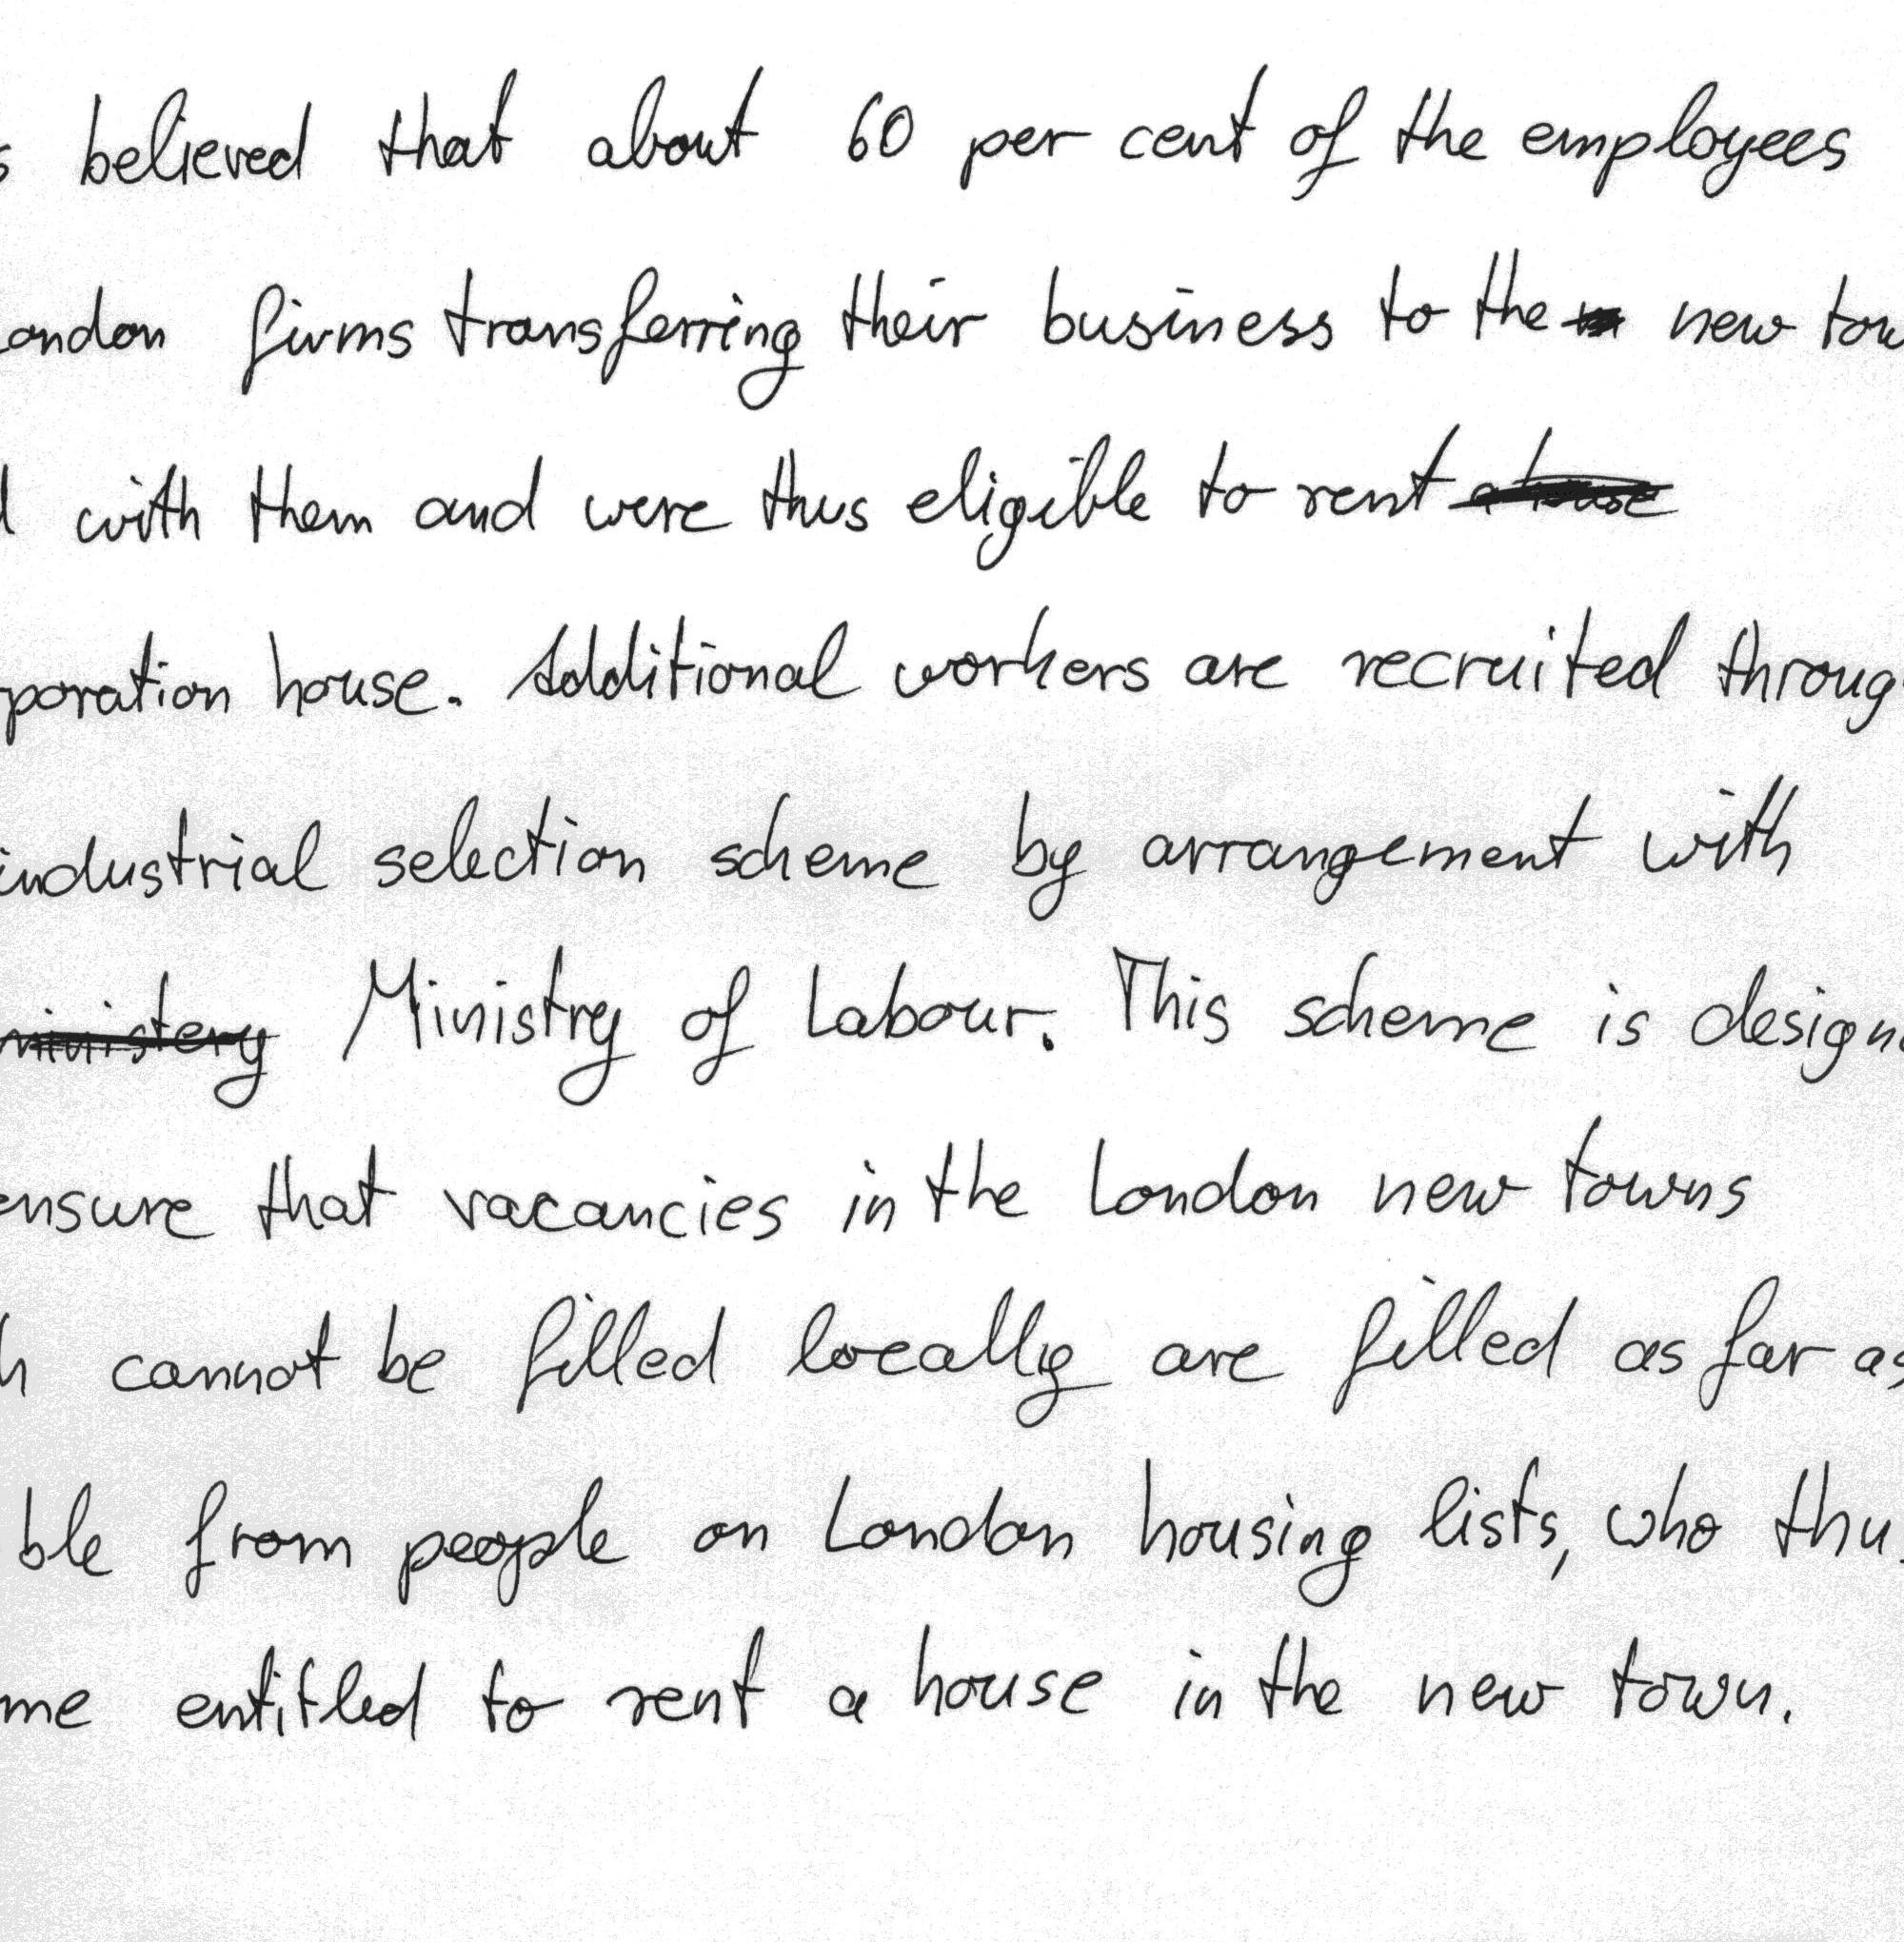 s believed that about 60 per cent of the employees
London firms transferring their business to the new tow
d with them and were thus eligible to rent
poration house. Additional workers are recruited throug
industrial selection scheme by arrangement with
ministery Ministry of Labour. This scheme is designe
ensure that vacancies in the London new towns
h cannot be filled locally are filled as far as
ble from people on London housing lists, who thus
me entitled to rent a house in the new town.